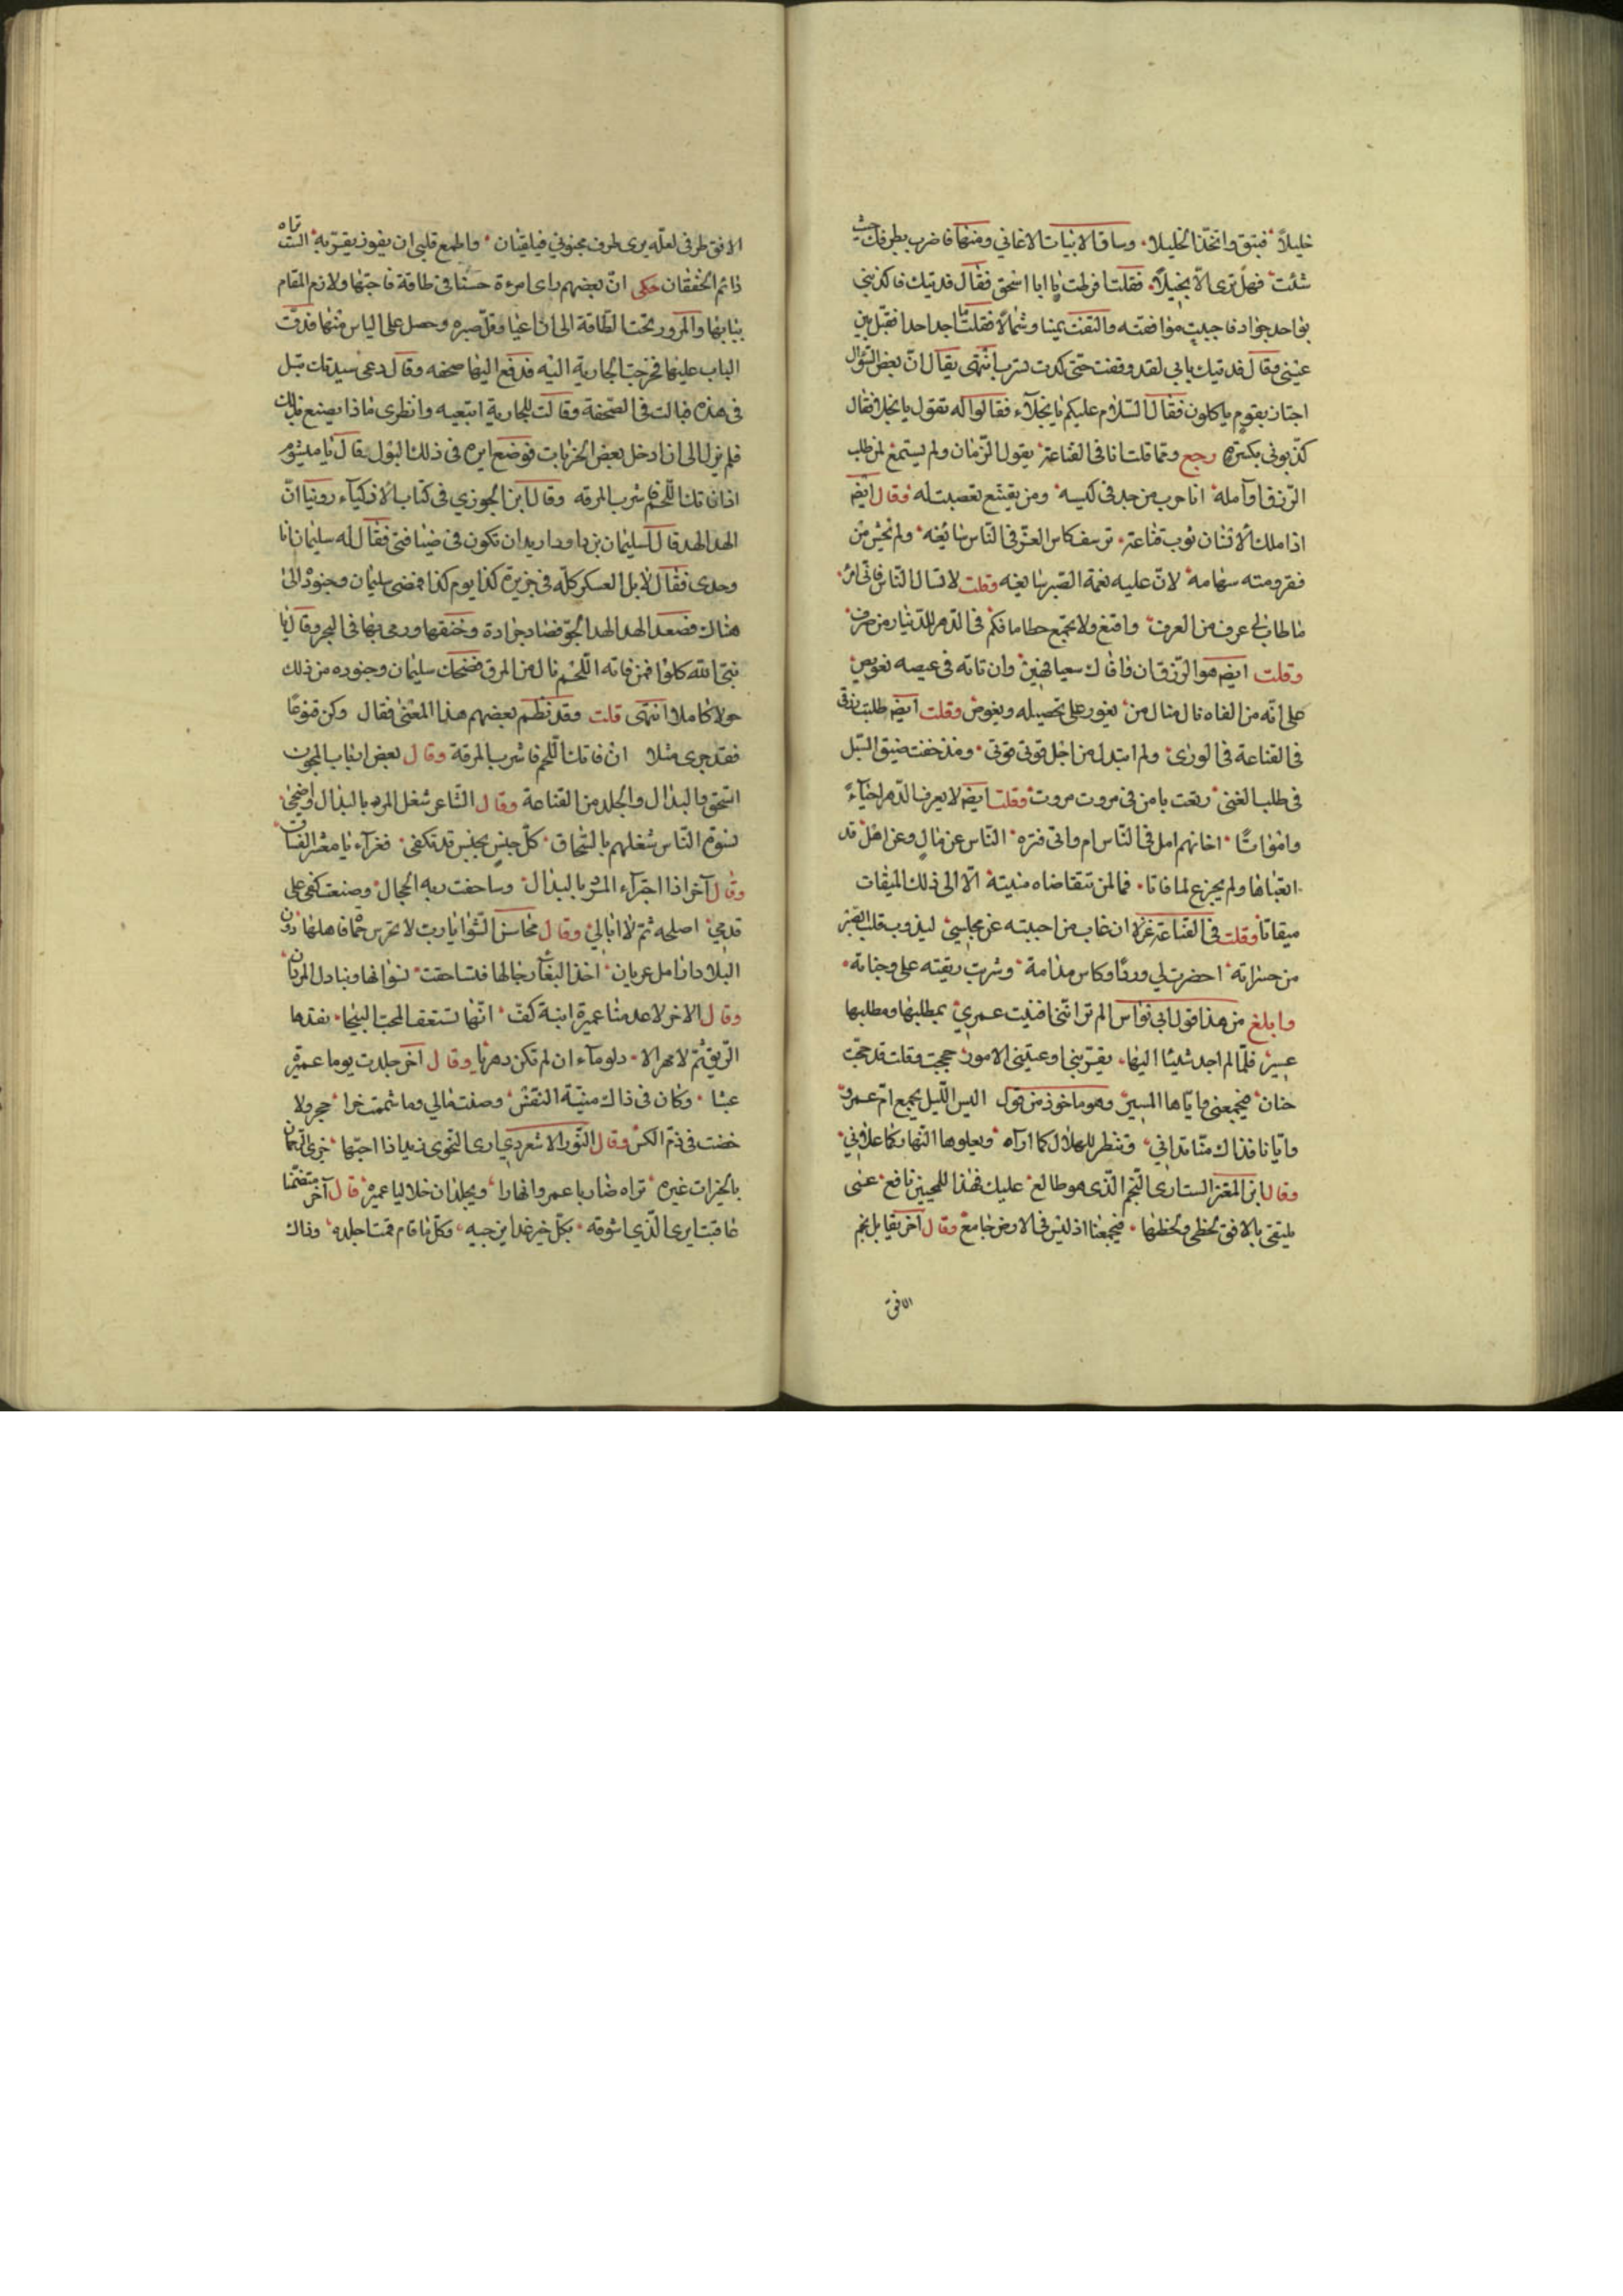 خليلاً فتبقى واتخذنا خليلا وساق الابيات الاغاني ومنها فاضرب بطرفك حيث
شئت فهل ترى الا بخيلاً فقلت افرطت يا ابا اسحق فقال فديتك فاكذبني
بواحد جواد فاحببت موافقته والتفت يمينا وشمالا فقلت ما اجد احدا فقبل بين
عيني وقال فديتك بابي لقد وقفت حتى كدت تترب انتهى يقال ان بعض السؤال
اجتاز بقوم ياكلون فقال السلام عليكم يا بخلاء فقالوا له تقول يا بخلا فقال
كذبوني بكسره رجع ومما قلت انا في القناعة يقول الزمان ولم يستمع لمن طلب
الرزق او آمله انا حرب من جد في كيسه ومن يقتنع تعصبت له وقال ايضا
اذا ملك الانسان ثوب قناعة ترشف كاس العز في الناس سائغه ولم يخش من
فقر ومته سهامه لان عليه نعمة الصبر سابغه وقلت لا تسال الناس فاني امر
ما طاب لي عرف من العرف واقنع ولا تجمع حطاما فكم في الدهر للدينار من صرف
وقلت ايضا هو الرزق ان وافاك سعيا فهين وان تاته في عيصه تعويص
على انه من الفاه نال منال من يغور على تحصيله ويغوص وقلت ايضا طلبت رزقي
في القناعة في الورى ولم ابتدل من اجل قوتي قوتي ومذ خفت ضيق السبل
في طلب الغنى ربعت بامن في مروت مروت وقلت ايضا لا يعرف الدهر احياءً
وامواتا اخا نهم امل في الناس ام واتى فتره الناس عن مال وعن اهل قد
اتعبناها ولم يجزع لما فاتا فما لمن تتقاضاه منيته الا الى ذلك الميقات
ميقاتا وقلت في القناعة غزلا ان غاب من احببته عن مجلسي ليذوب قلب الصب
من حسراته احضرت لي وردا وكاس مدامة وشربت ريقته على وجناته
وابلغ من هذا قول ابي نواس الم تر انني افنيت عمري بمطلبها ومطلبها
عسير فلما لم اجد شيئا اليها يقربني واعيتني الامور حججت وقلت قد حجت
جنان فيجمعني واياها المسير وهو ماخوذ من قول اليس الليل يجمع ام عمرو
وايانا فذاك منا تداني وتنظر للهلال كما اراه ويعلوها النهار كما علاني
وقال ابن المعتز الست ارى النجم الذي هو طالع عليك فهذا للمحبين نافع عسى
يلتقي بالافق لحظي ولحظها فيجمعنا اذ ليس في الارض جامع وقال اخر يقابل نجم
الافق
الافق طرفي لعله يرى طرف محبوبي فيلتقيان واطمع قلبي ان يفوز بقربه الست تراه
دائم الخفقان حكى ان بعضهم راى امرءة حسنا في طاقة فاحبها ولازم المقام
ببابها والمرور تحت الطاقة الى ان اعيا وقل صبره وحصل على الياس منها فدق
الباب عليها فخرجت الجارية اليه فدفع اليها صحفه وقال دعي سيدتك تبل
في هذه فبالت في الصحفة وقالت للجارية اتبعيه وانظري ماذا يصنع بذلك
فلم يزل الى ان دخل بعض الخرابات فوضع ايره في ذلك البول وقال يا ميشوم
اذا فاتك اللحم فاشرب المرقه وقال ابن الجوزي في كتاب الاذكياء روينا ان
الهدهد قال لسليمان بن داود اريد ان تكون في ضيافتي فقال له سليمان انا
وحدي فقال لا بل العسكر كله في جزيرة كذا يوم كذا فمضى سليمان وجنوده الى
هناك فصعد الهدهد الجو فصاد جرادة وخنقها ورمى بها في البحر وقال يا
نبي الله كلوا فمن فاته اللحم نال من المرق فضحك سليمان وجنوده من ذلك
حولا كاملا انتهى قلت وقد نظم بعضهم هذا المعنى فقال وكن قنوعا
فقد جرى مثلا ان فاتك اللحم فاشرب المرقة وقال بعض ارباب المجون
السحق والبدال والجلد من القناعة وقال الشاعر شغل المرد بالبدال واضحى
نسوة الناس شغلهم بالسحاق كل جنس بجنس قد تكفى فغراء يا معشر الفساق
وقال آخر اذا اجتزاء المرد بالبدال وساحقت ربه الحجال وصنعت كفي على
قدمي اصلحه ثم لا ابالي وقال محاسن الشوا يارب لا تحرس حماة اهلها دون
البلاد انامل عريان اخذ البغاء رجالها فتساحقت نسوانها وتبادل المردان
وقال الاخر لا عدمنا عميرة ابنة كف انها تسعف المحب البينا نقدها
الريق ثم لا مهر الا دلو ماء ان لم تكن دهريا وقال آخر جلدت يوما عميرة
عبثا وكان في ذاك منية النفس وصنت مالي وما شممت خرا حجر ولا
خضت في دم الكس وقال النور الاسعردي ارى النحوي زيدا ذا اجتها خري الرحمان
بالخيرات غيره تراه ضاربا عمروا نهارا ويجلد ان خلا ليا عميره قال آخر متضمنا
عاقبت ايري الذي اشوقه بكل خير غدا يرن جبيه وكلما قام قمت اجلده وذاك